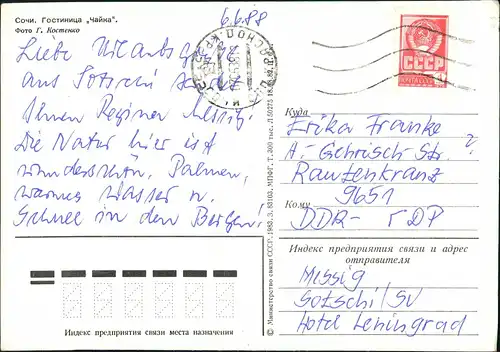 Сочи. Гостиница „Чайка".
Фото Г. Костенко
6.6.88
Liebe Urlaubsgrüße
aus Sotschi sendet
Ihnen Regina Messig
Die Natur hier ist
wunderschön, Palmen,
warmes Wasser u.
Schnee in den Bergen!
СССР
Куда
Erika Franke
A.-Gehrisch-Str. ?
Rautenkranz
9651
Кому
DDR - ГДР
Индекс предприятия связи и адрес
отправителя
Messig
Sotschi/SU
Hotel Leningrad
Индекс предприятия связи места назначения
© Министерство связи СССР, 1983. З. 83103. МПФГ. Т. 300 тыс.